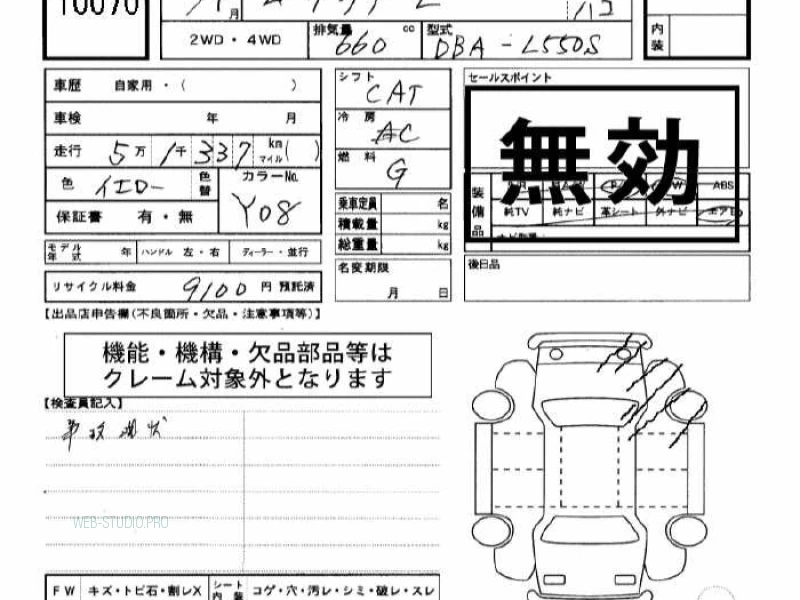 10070
月
2WD・4WD
排気量 660 cc
型式 DBA-L550S
内装
車歴 自家用・( )
車検 年 月
走行 5万1千337 km マイル( )
色 イエロー 色替
カラーNo. Y08
保証書 有・無
モデル年式 年 ハンドル 左・右 ディーラー・並行
リサイクル料金 9100 円 預託済
シフト CAT
冷房 AC
燃料 G
乗車定員 名
積載量 kg
総重量 kg
名変期限 月 日
セールスポイント
無効
装備品 ABS
純TV 純ナビ 革シート 外ナビ エアB
後日品
【出品店申告欄(不良箇所・欠品・注意事項等)】
機能・機構・欠品部品等は
クレーム対象外となります
【検査員記入】
事故現状
WEB-STUDIO.PRO
FW キズ・トビ石・割レX シート内装 コゲ・穴・汚レ・シミ・破レ・スレ